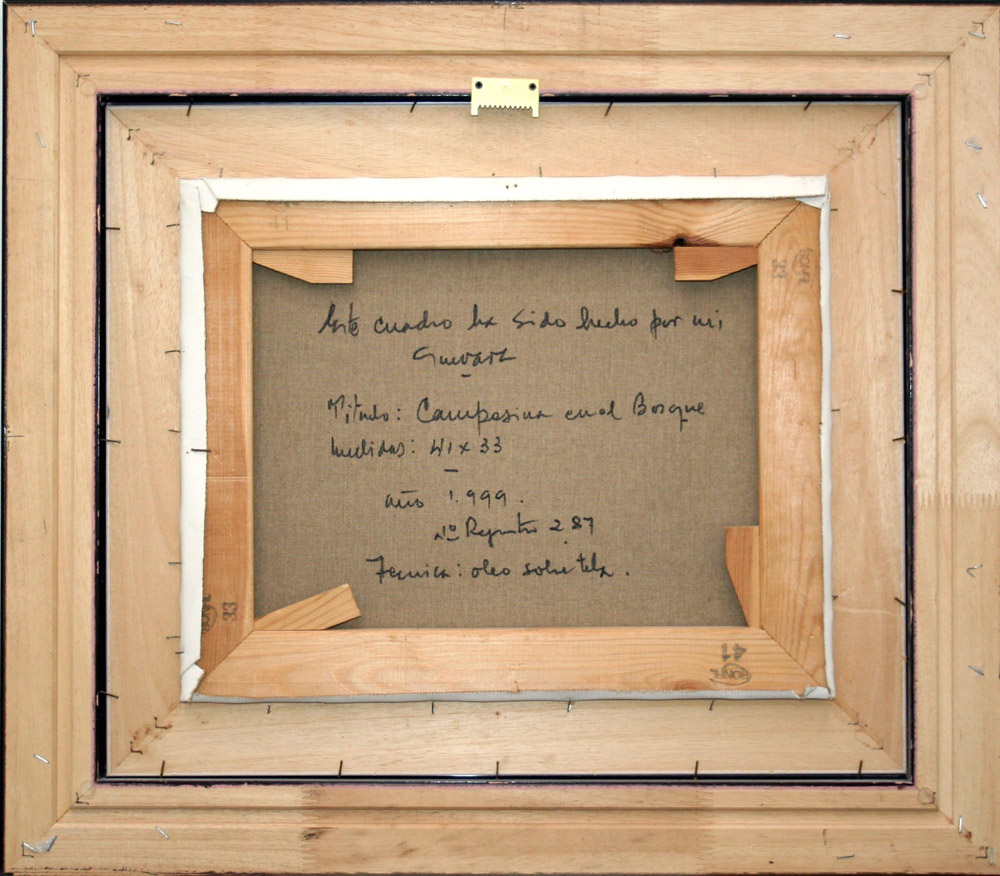 Este cuadro ha sido hecho por mi,
Guevara
Titulo: Campesina en el Bosque
Medidas: 41 x 33
año 1.999.
Nº Registro 287
Tecnica: oleo sobre tela.
33
33
41